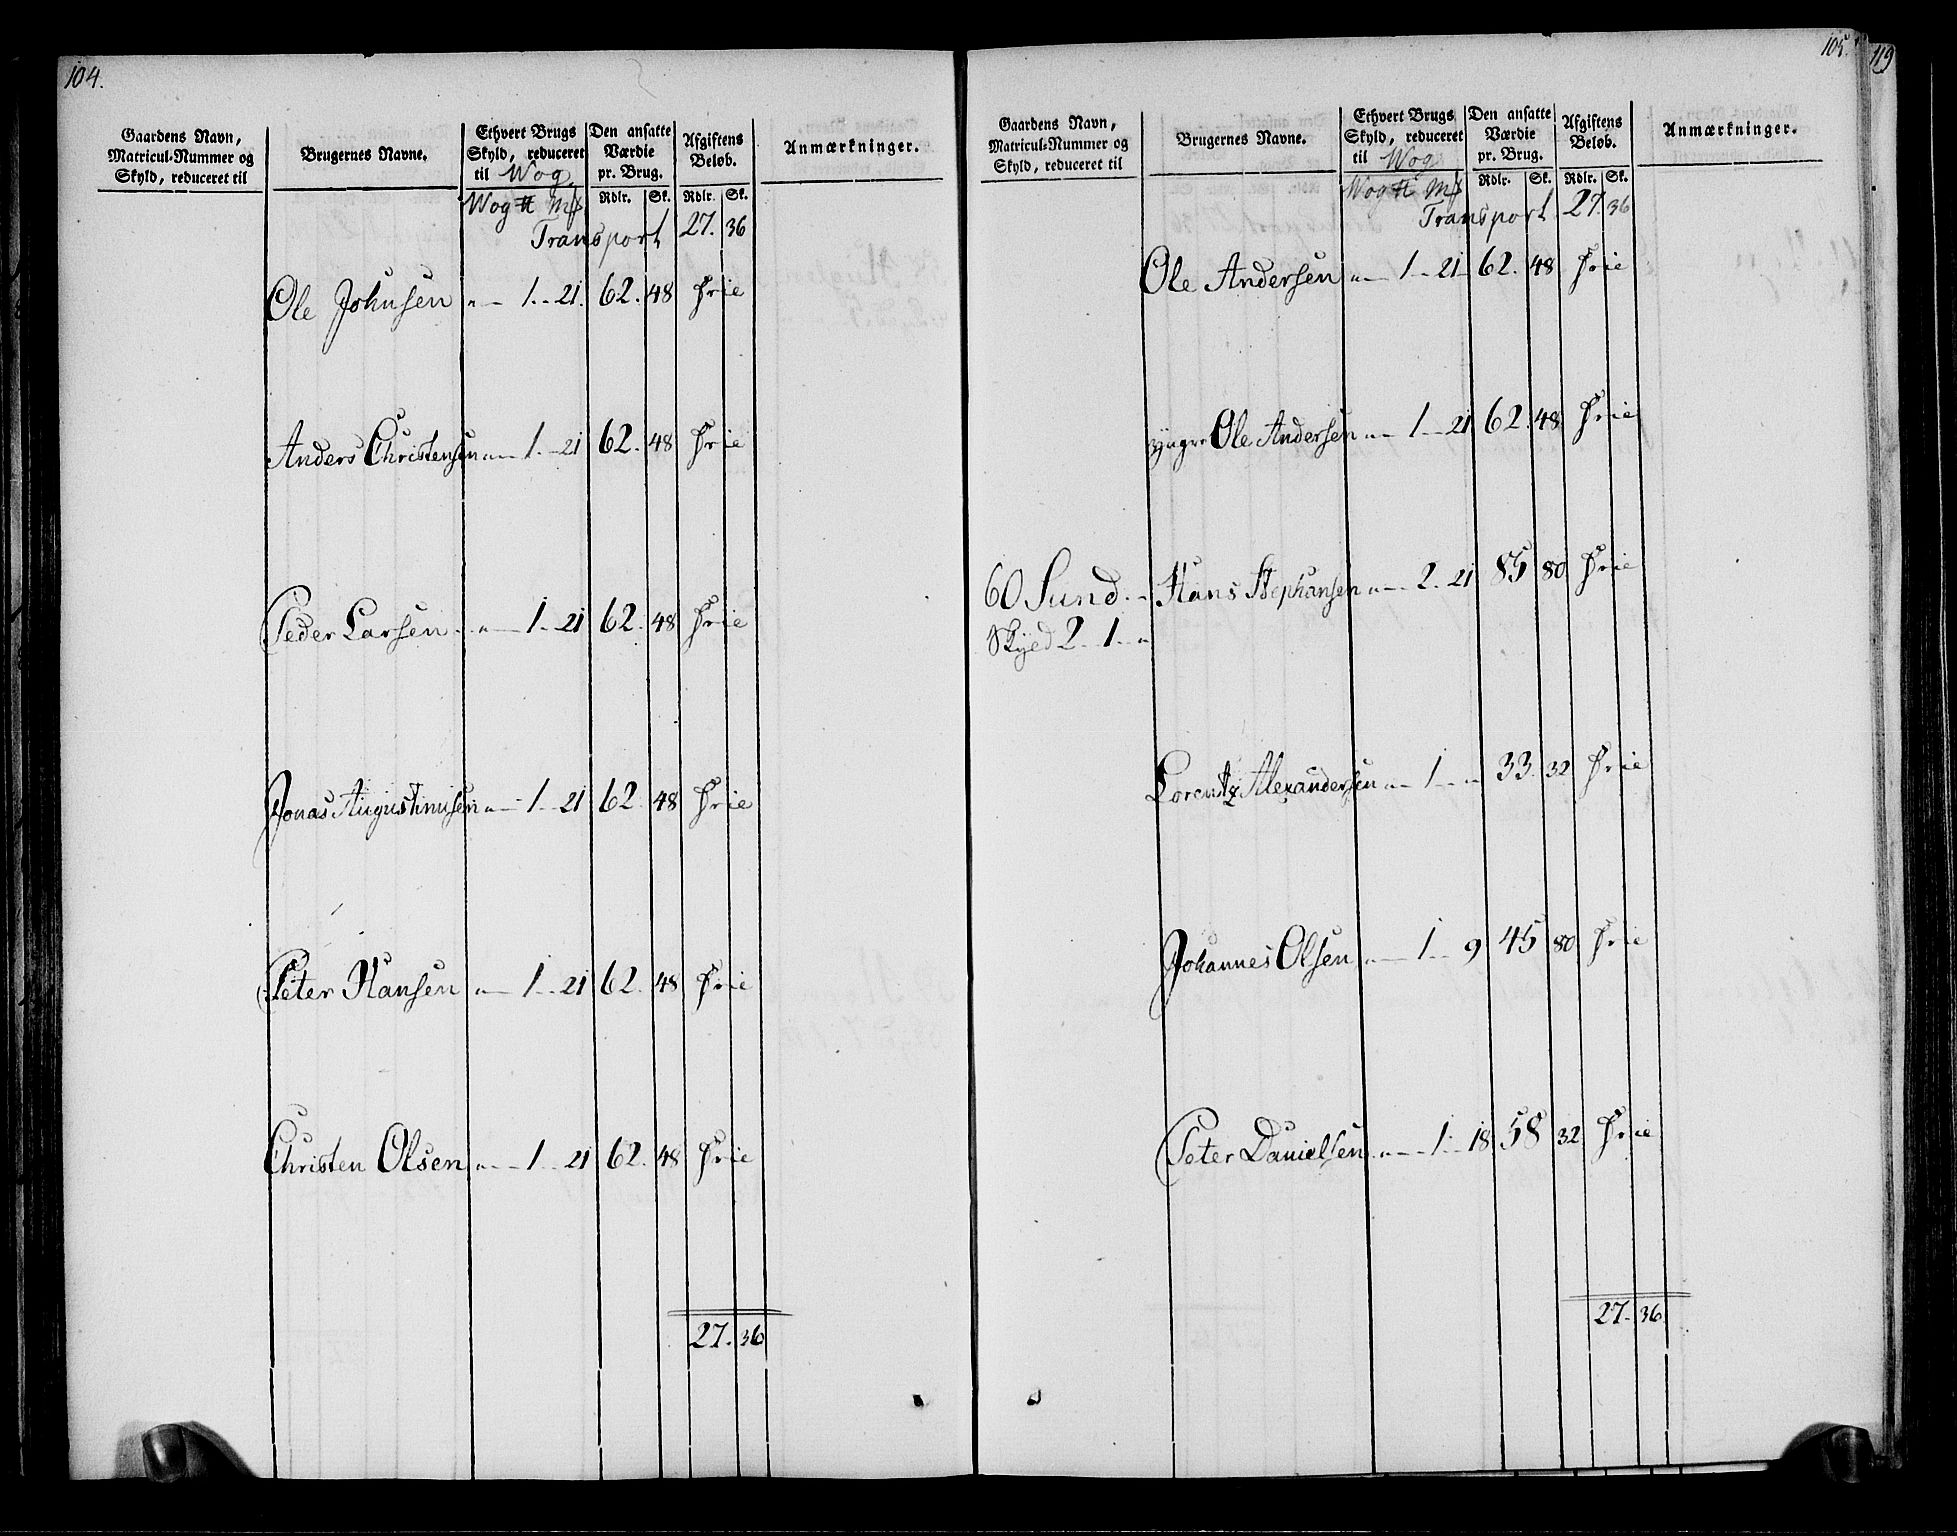 104.
Gaardens Navn, Matricul-Nummer og Skyld, reduceret til
Brugernes Navne.
Ethvert Brugs Skyld, reduceret til Wog.
Den ansatte Værdie pr. Brug.
Afgiftens Beløb.
Anmærkninger.
Wog ℔ Mk Rdlr. Sk. Rdlr. Sk.
Transport 27. 36
Ole Johnsen „ — 1 — 21. 62. 48 Frie
Anders Christensen „ — 1 — 21 62. 48 Frie
Peder Larsen „ — 1 — 21 62. 48 Frie
Jonas Augustinusen „ — 1 — 21 62. 48 Frie
Peter Hansen „ — 1 — 21 62. 48 Frie
Christen Olsen „ — 1 — 21 62. 48 Frie
27. 36
105.
119
Gaardens Navn, Matricul-Nummer og Skyld, reduceret til
Brugernes Navne.
Ethvert Brugs Skyld, reduceret til Wog
Den ansatte Værdie pr. Brug.
Afgiftens Beløb.
Anmærkninger.
Wog ℔ Mk Rdlr. Sk. Rdlr. Sk.
Transport 27. 36
Ole Andersen „ — 1 — 21 62. 48 Frie
yngre Ole Andersen „ — 1 — 21 62. 48 Frie
60 Sund. Hans Stephansen „ — 2. 21 85 80 Frie
Skyld 2. 1. „
Lorentz Alexandersen „ — 1 — „ 33. 32 Frie
Johannes Olsen „ — 1 — 9 45 80 Frie
Peter Danielsen „ — 1 — 18 58 32 Frie
27. 36.